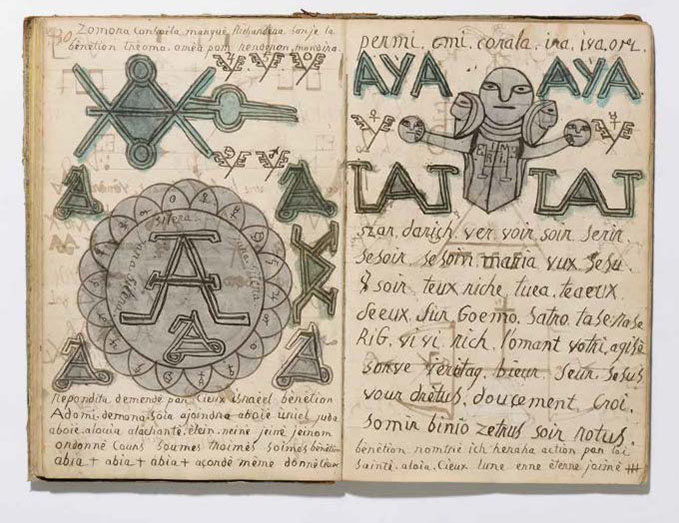 30 Zomora Conspéla manqué Richandera sonje la
bénétion tréoma. oméa pam. renderon. mondira.
A
A
A
A
A
silera
repondita demende par Cieux israëel bénétion
Adomi. demona. soia ajoindra aboie uriel juda
aboie. alouia alachante. élein. neine jeiné jeinom
ordonné Cours soumes troimes soimes bénétion
abia + abia + abia + acordé même donné Cieux
permi. emi. corala. ira. iva. orz.
AYA AYA
LAT LAT
szan. darich. ver. voir. soin. serin.
sesoir. sesoin. maria vux. sesu.
soir. teux riche. tuea. teaeux
seeux. sur. Goemo. satro. tasenase
RiG. vi vi rich. l'omant votri. agise
sonve véritag. bieur. seur. sesus
vour drétus. doucement. Croi.
somir binio zetrus soir rotus.
bénétion nomtné ich heraha action par loi
sainté. aloia. Cieux lune enne éterne joimé